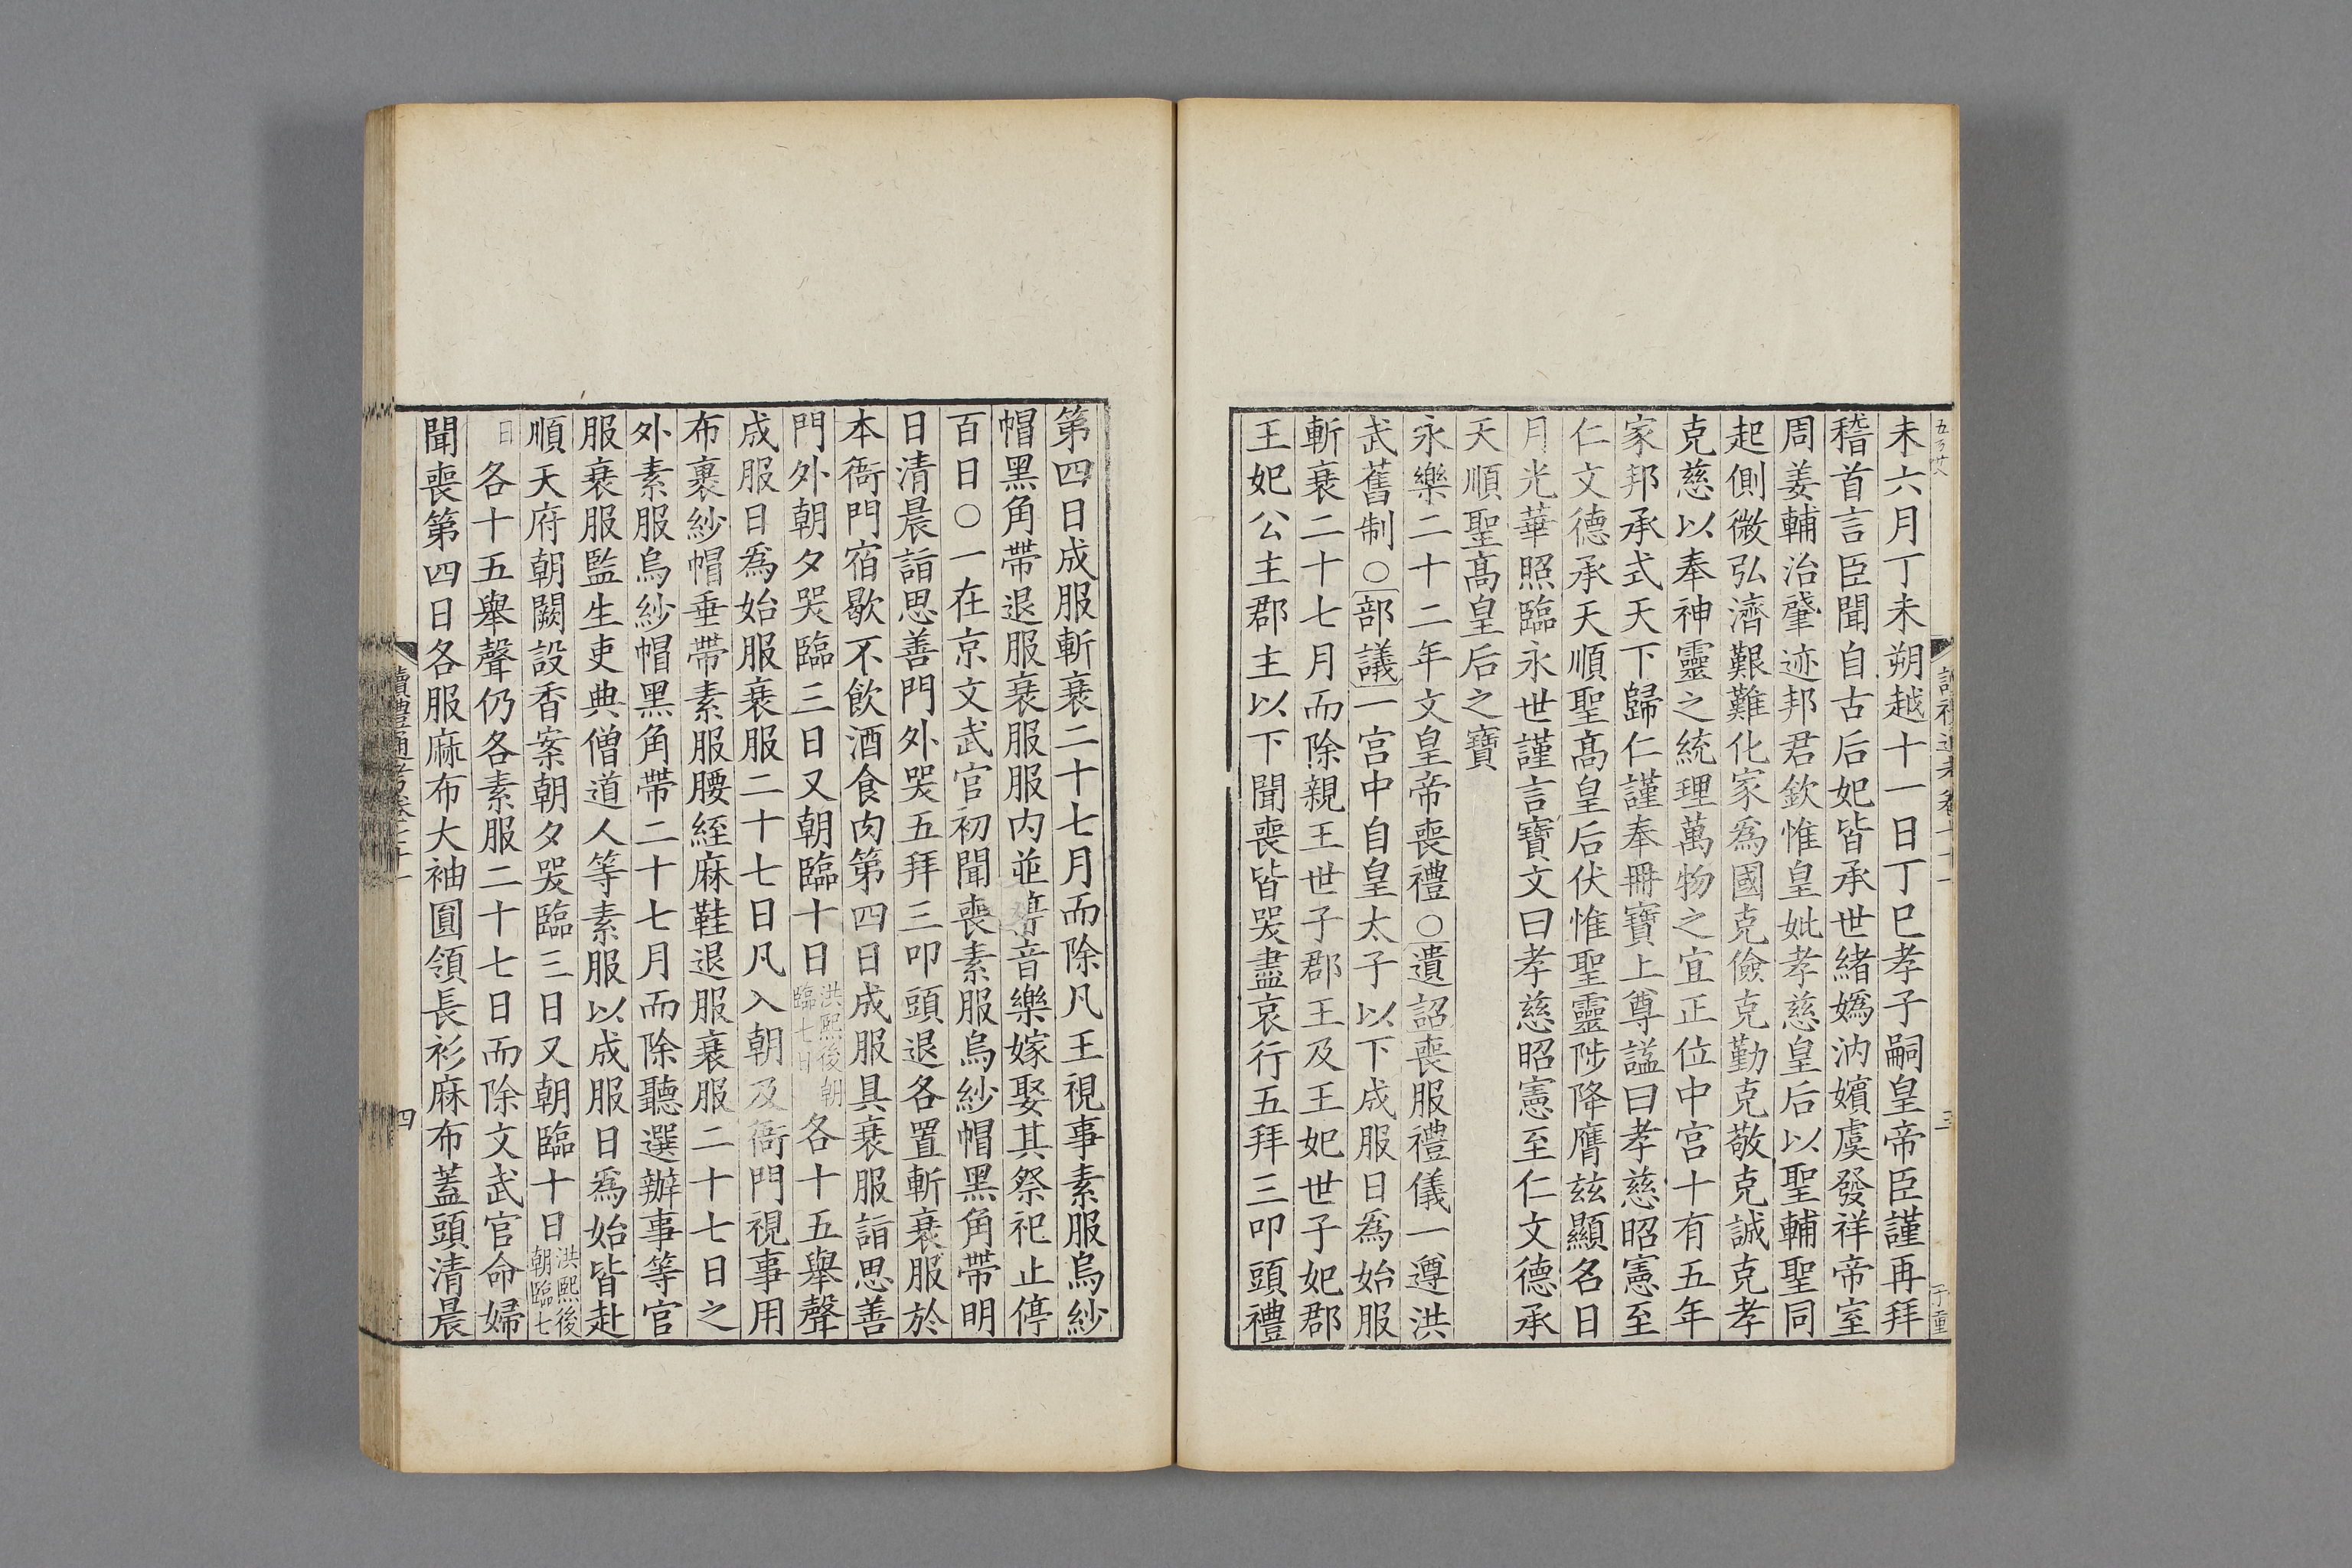 未六月丁未朔越十一日丁巳孝子嗣皇帝臣謹再拜
稽首言臣聞自古后妃皆承世緒嬀汭嬪虞發祥帝室
周姜輔治肇迹邦君欽惟皇妣孝慈皇后以聖輔聖同
起側微弘濟艱難化家爲國克儉克勤克敬克誠克孝
克慈以奉神靈之統理萬物之宜正位中宮十有五年
家邦承式天下歸仁謹奉冊寶上尊諡曰孝慈昭憲至
仁文德承天順聖髙皇后伏惟聖靈陟降膺兹顯名日
月光華照臨永世謹言寶文曰孝慈昭憲至仁文德承
天順聖髙皇后之寶
永樂二十二年文皇帝喪禮○遺詔喪服禮儀一遵洪
武舊制○部議一宮中自皇太子以下成服日爲始服
斬衰二十七月而除親王世子郡王及王妃世子妃郡
王妃公主郡主以下聞喪皆哭盡哀行五拜三叩頭禮
第四日成服斬衰二十七月而除凡王視事素服烏紗
帽黑角帶退服衰服服内並音樂嫁娶其祭祀止停
百日○一在京文武官初聞喪素服烏紗帽黑角帶明
日清晨詣思善門外哭五拜三叩頭退各置斬衰服於
本衙門宿歇不飲酒食肉第四日成服具衰服詣思善
門外朝夕哭臨三日又朝臨十日洪熙後朝臨七日各十五舉聲
成服日爲始服衰服二十七日凡入朝及衙門視事用
布裹紗帽垂帶素服腰絰麻鞋退服衰服二十七日之
外素服烏紗帽黑角帶二十七月而除聽選辦事等官
服衰服監生吏典僧道人等素服以成服日爲始皆赴
順天府朝闕設香案朝夕哭臨三日又朝臨十日洪熙後朝臨七
日各十五舉聲仍各素服二十七日而除文武官命婦
聞喪第四日各服麻布大袖圓領長衫麻布蓋頭清晨
讀禮通考卷七十一
四